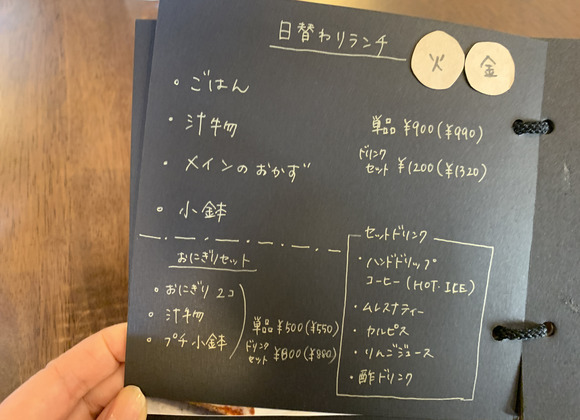 日替わりランチ
火
金
・ごはん
・汁物
・メインのおかず
・小鉢
単品 ¥900(¥990)
ドリンク
セット ¥1200(¥1320)
おにぎりセット
・おにぎり 2コ
・汁物
・プチ小鉢
単品 ¥500(¥550)
ドリンク
セット ¥800(¥880)
セットドリンク
・ハンドドリップ
コーヒー(HOT・ICE)
・ムレスナティー
・カルピス
・りんごジュース
・酢ドリンク